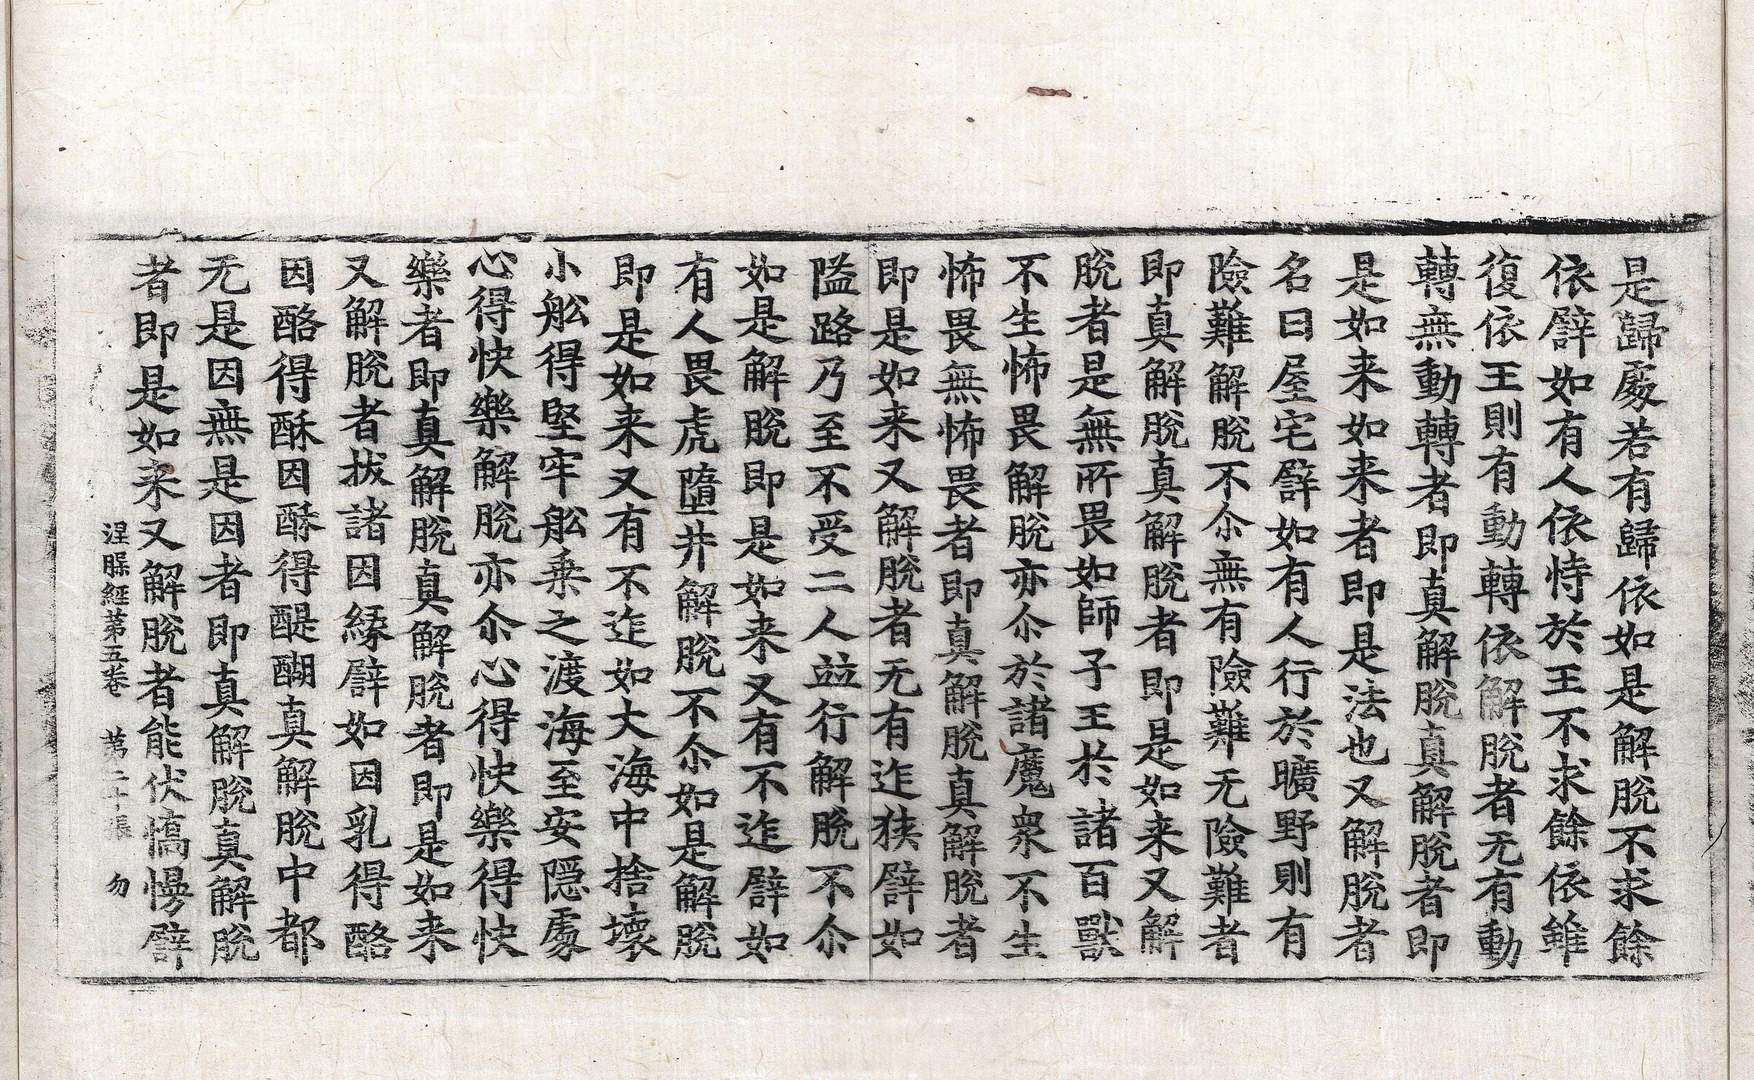 是歸處若有歸依如是解脫不求餘
依譬如有人依恃於王不求餘依雖
復依王則有動轉依解脫者无有動
轉無動轉者即真解脫真解脫者即
是如来如来者即是法也又解脫者
名曰屋宅譬如有人行於曠野則有
險難解脫不尒無有險難无險難者
即真解脫真解脫者即是如来又解
脫者是無所畏如師子王於諸百獸
不生怖畏解脫亦尒於諸魔衆不生
怖畏無怖畏者即真解脫真解脫者
即是如来又解脫者无有迮狹譬如
隘路乃至不受二人並行解脫不尒
如是解脫即是如来又有不迮譬如
有人畏虎墮井解脫不尒如是解脫
即是如来又有不迮如大海中捨壞
小舩得堅牢舩乗之渡海至安隠處
心得快樂解脫亦尒心得快樂得快
樂者即真解脫真解脫者即是如来
又解脫者拔諸因緣譬如因乳得酪
因酪得酥因酥得醍醐真解脫中都
无是因無是因者即真解脫真解脫
者即是如来又解脫者能伏憍慢譬
涅槃經第五卷　第二十張　勿